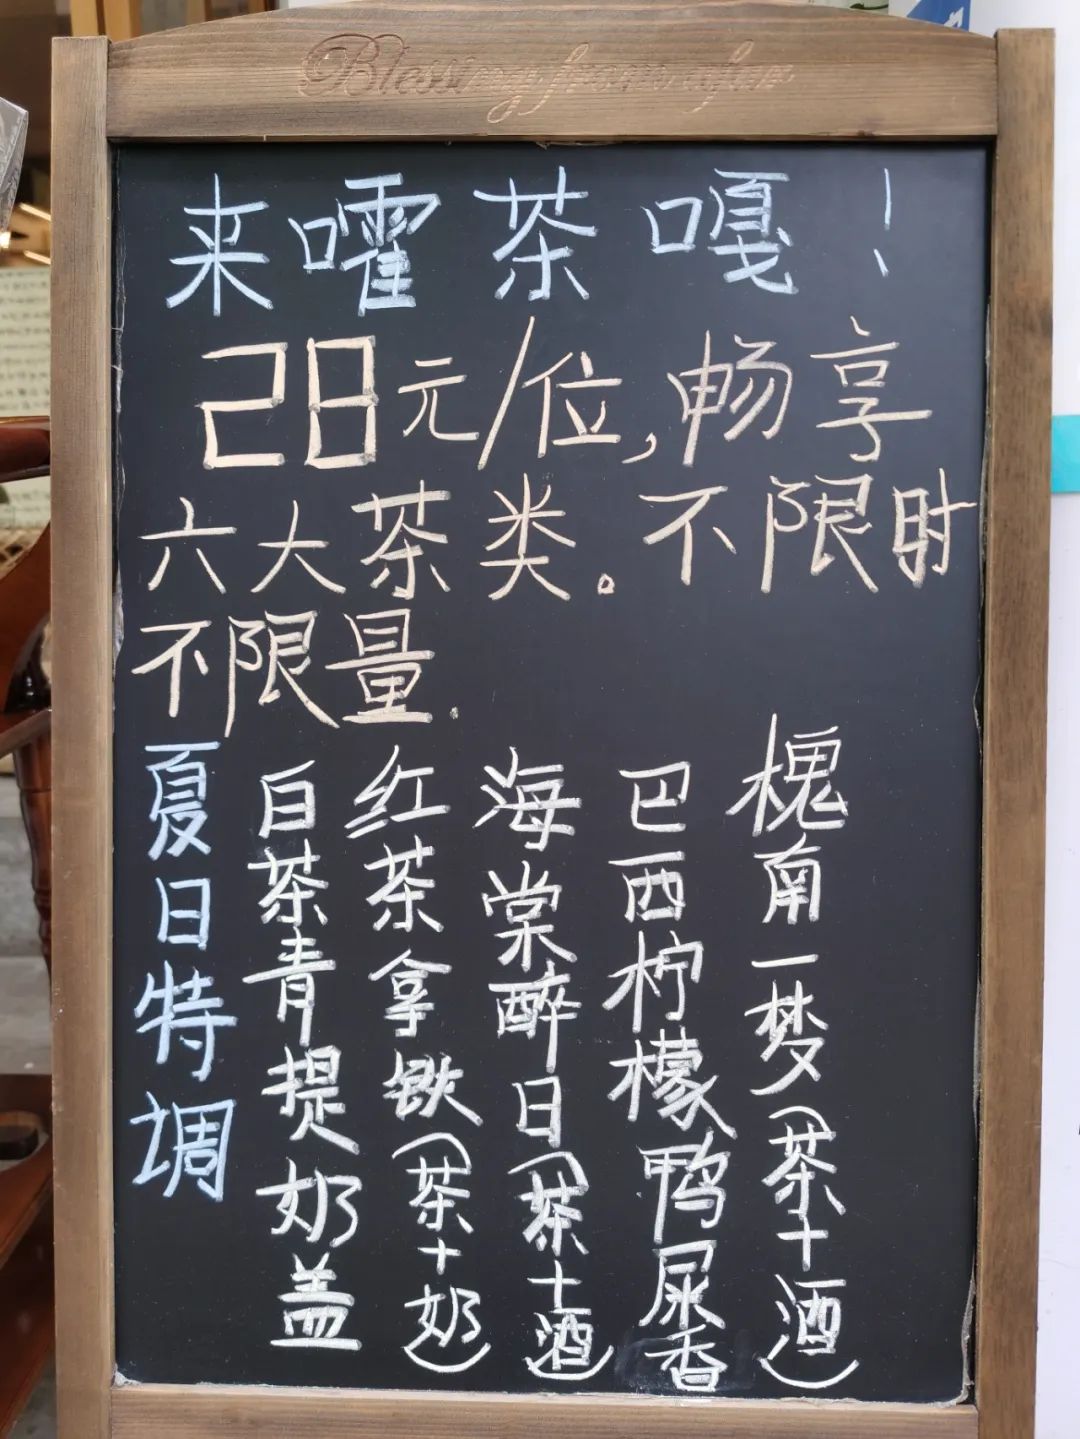 Blessing from afar
来嚯茶嘎！
28元/位,畅享
六大茶类。不限时
不限量.
夏日特调
白茶青提奶盖
红茶拿铁(茶+奶)
海棠醉日(茶+酒)
巴西柠檬鸭屎香
槐南一梦(茶+酒)